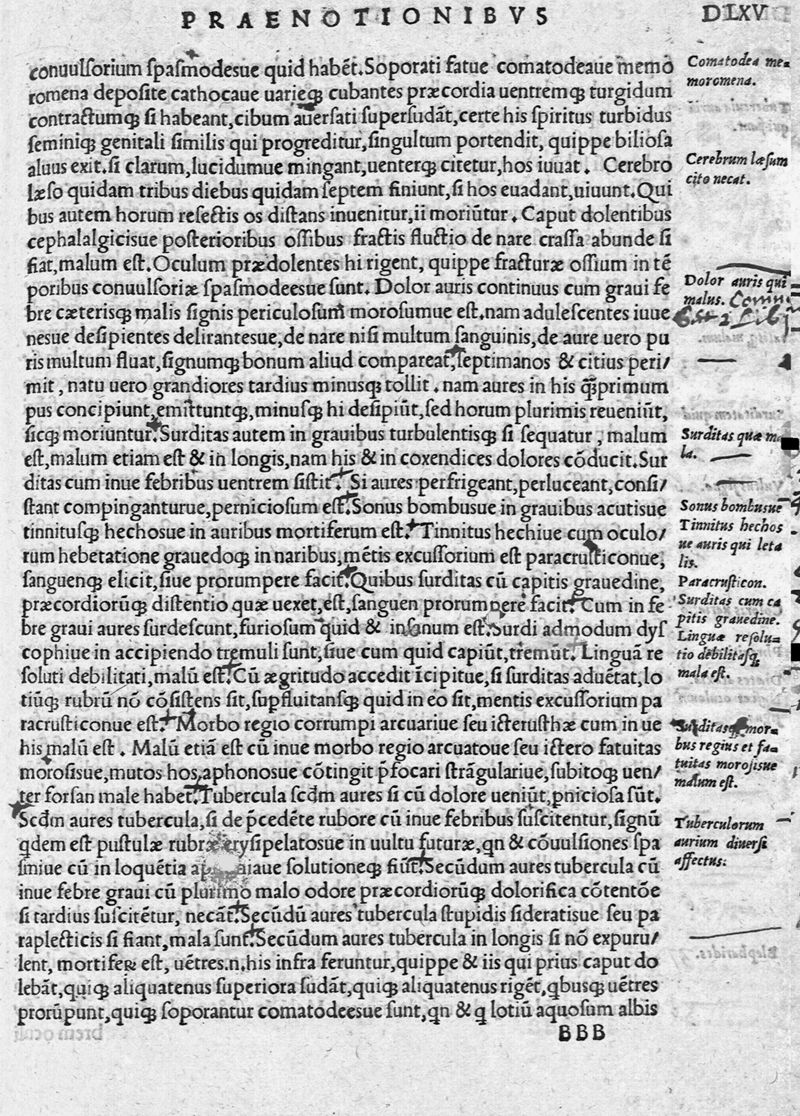 PRAENOTIONIBVS
DLXV
conuulsorium spasmodesue quid habēt. Soporati fatue comatodeaue memo
romena deposite cathocaue uarieq́ꝫ cubantes præcordia uentremq́ꝫ turgidum
contractumq́ꝫ si habeant, cibum auersati supersudāt, certe his spiritus turbidus
seminiq́ꝫ genitali similis qui progreditur, singultum portendit, quippe biliosa
aluus exit. si clarum, lucidumue mingant, uenterq́ꝫ citetur, hos iuuat. Cerebro
læso quidam tribus diebus quidam septem finiunt, si hos euadant, uiuunt. Qui
bus autem horum resectis os distans inuenitur, ii moriūtur. Caput dolentibus
cephalalgicisue posterioribus ossibus fractis fluctio de nare crassa abunde si
fiat, malum est. Oculum prædolentes hi rigent, quippe fracturæ ossium in tē
poribus conuulsoriæ spasmodeesue sunt. Dolor auris continuus cum graui fe
bre cæterisq́ꝫ malis signis periculosum morosumue est. nam adulescentes iuue
nesue desipientes delirantesue, de nare nisi multum sanguinis, de aure uero pu
ris multum fluat, signumq́ꝫ bonum aliud compareat, septimanos & citius peri/
mit, natu uero grandiores tardius minusq́ꝫ tollit. nam aures in his q̄ꝫprimum
pus concipiunt, emittuntq́ꝫ, minusq́ꝫ hi desipiūt, sed horum plurimis reueniūt,
sicq́ꝫ moriuntur. Surditas autem in grauibus turbulentisq́ꝫ si sequatur, malum
est, malum etiam est & in longis, nam his & in coxendices dolores cōducit. Sur
ditas cum inue febribus uentrem sistit. Si aures perfrigeant, perluceant, consi/
stant compinganturue, perniciosum est. Sonus bombusue in grauibus acutisue
tinnitusq́ꝫ hechosue in auribus mortiferum est. Tinnitus hechiue cum oculo/
rum hebetatione grauedoq́ꝫ in naribus, mētis excussorium est paracrusticonue,
sanguenq́ꝫ elicit, siue prorumpere facit. Quibus surditas cū capitis grauedine,
præcordiorūq́ꝫ distentio quæ uexet, est, sanguen prorumpere facit. Cum in fe
bre graui aures surdescunt, furiosum quid & insanum est. Surdi admodum dys
cophiue in accipiendo tremuli sunt, siue cum quid capiūt, tremūt. Linguā re
soluti debilitati, malū est. Cū ægritudo accedit īcipitue, si surditas aduētat, lo
tiūq́ꝫ rubrū nō cōsistens sit, supfluitansq́ꝫ quid in eo sit, mentis excussorium pa
racrusticonue est. Morbo regio corrumpi arcuariue seu icterusthæ cum in ue
his malū est. Malū etiā est cū inue morbo regio arcuatoue seu ictero fatuitas
morosisue, mutos hos, aphonosue cōtingit p̄focari strāgulariue, subitoq́ꝫ uen/
ter forsan male habet. Tubercula scđm aures si cū dolore ueniūt, pniciosa sūt.
Scđm aures tubercula, si de p̄cedēte rubore cū inue febribus suscitentur, signū
qdem est pustulæ rubræ erysipelatosue in uultu futuræ, qn & cōuulsiones spa
smiue cū in loquētia solutioneq́ꝫ fiūt. Secūdum aures tubercula cū
inue febre graui cū plurimo malo odore præcordiorūq́ꝫ dolorifica cōtentōe
si tardius suscitētur, necāt. Secūdū aures tubercula stupidis sideratisue seu pa
raplecticis si fiant, mala sunt. Secūdum aures tubercula in longis si nō expuru/
lent, mortifeꝝ est, uētres.n. his infra feruntur, quippe & iis qui prius caput do
lebāt, quiq́ꝫ aliquatenus superiora sudāt, quiq́ꝫ aliquatenus rigēt, qbusq́ꝫ uētres
prorūpunt, quiq́ꝫ soporantur comatodeesue sunt, qn & q lotiū aquosum albis
BBB
Comatodea me-
moromena.
Cerebrum læsum
cito necat.
Dolor auris qui
malus.
Surditas quæ ma
la.
Sonus bombusue
Tinnitus hechos
ue auris qui leta
lis.
Paracrusticon.
Surditas cum ca
pitis grauedine.
Linguæ resolu-
tio debilitasq́ꝫ
mala est.
Surditasq́ꝫ mor-
bus regius et fa-
tuitas morosisue
malum est.
Tuberculorum
aurium diuersi
affectus: